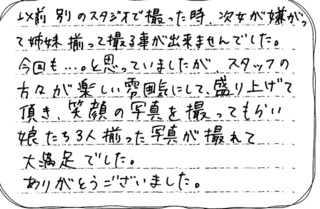 以前 別のスタジオで撮った時、次女が嫌がっ
て姉妹 揃って撮る事が出来ませんでした。
今回も…。と思っていましたが、スタッフの
方々が楽しい雰囲気にして、盛り上げて
頂き、笑顔の写真を撮ってもらい
娘たち3人揃った写真が撮れて
大満足でした。
ありがとうございました。